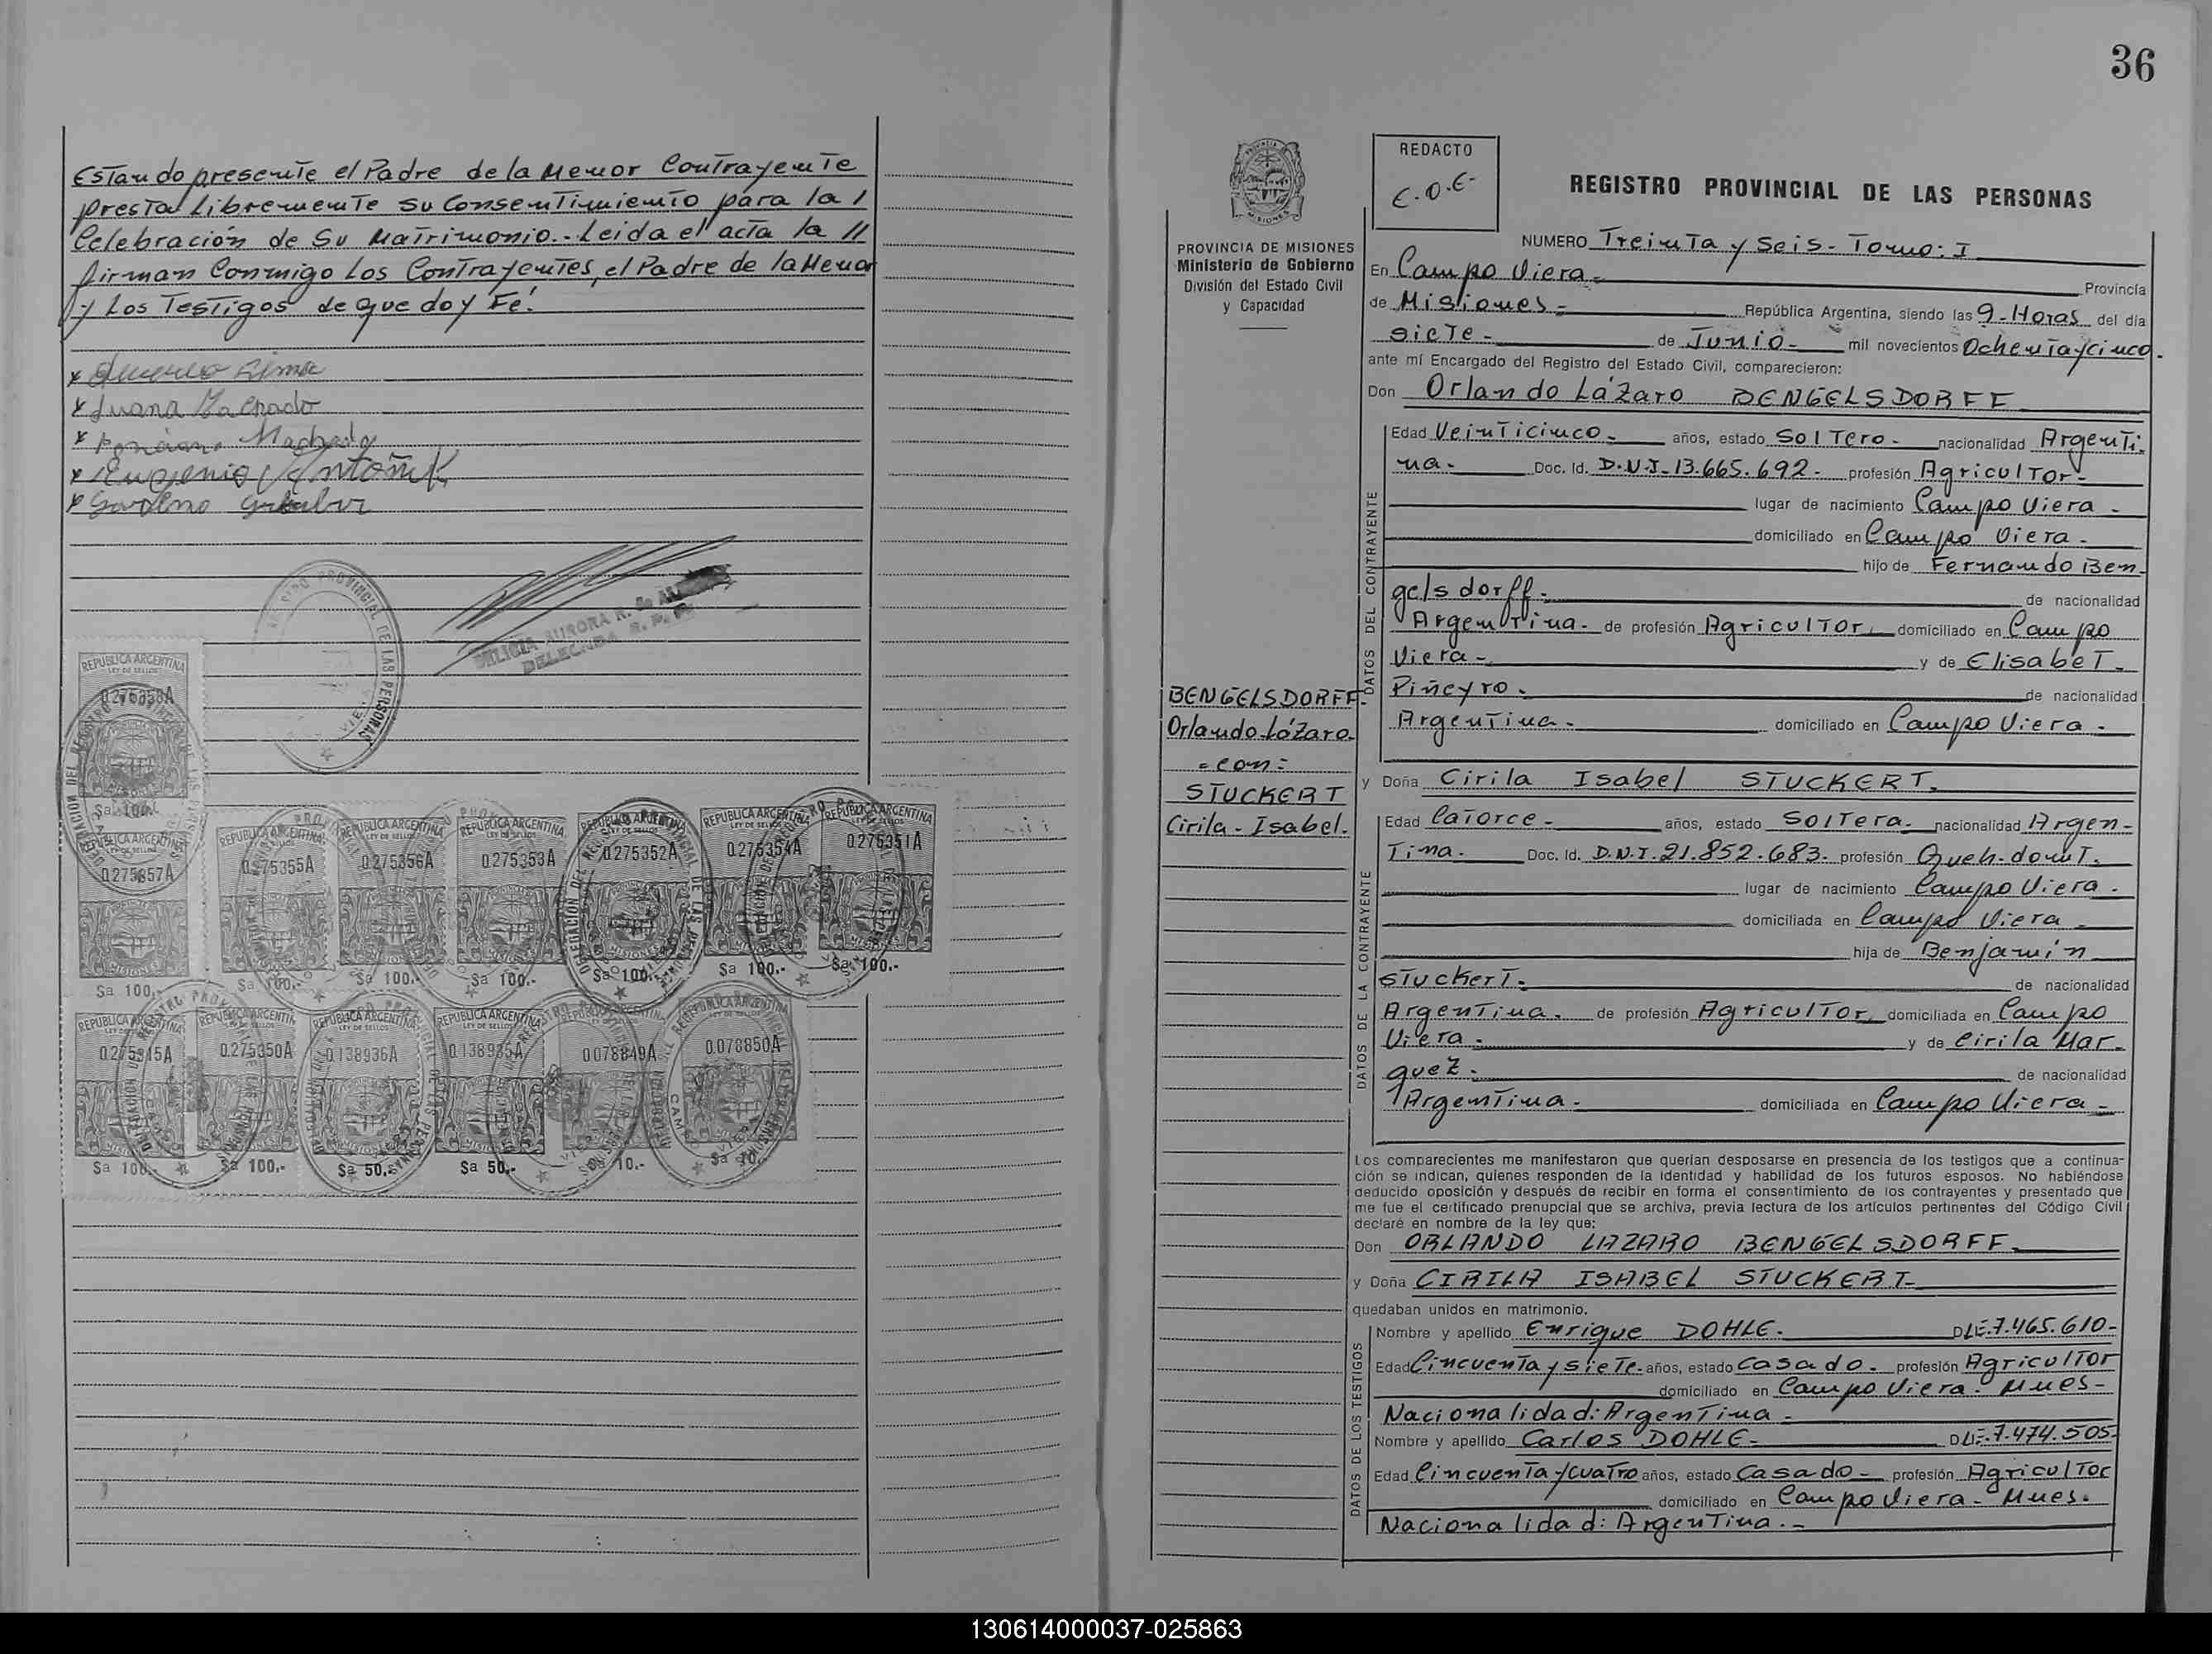 Estando presente el Padre de la Menor Contrayente
presta Libremente su Consentimiento para la /
Celebración de Su Matrimonio.- Leida el acta la //
firman Conmigo Los Contrayentes, el Padre de la Menor
y Los Testigos de que doy Fé.
x Juana Machado
x Machado
x Eugenio
REGISTRO PROVINCIAL DE LAS PERSONAS
AURORA R. de
DELEGADA R. P. P.
REPUBLICA ARGENTINA
LEY DE SELLOS
0.275358A
$a 100.-
REPUBLICA ARGENTINA
0.275357A
$a 100.-
0.275355A 0.275356A 0.275353A 0.275352A 0.275354A 0.275351A
$a 100.- $a 100.- $a 100.- $a 100.- $a 100.- $a 100.-
0.275350A 0.138936A 0.138935A 0.078849A 0.078850A
$a 100.- $a 100.- $a 50.- $a 50.- $a 10.- $a 10.-
36
PROVINCIA DE MISIONES
Ministerio de Gobierno
División del Estado Civil
y Capacidad
REDACTO
E.O.E-
REGISTRO PROVINCIAL DE LAS PERSONAS
NUMERO Treinta y Seis - Tomo: I
En Campo Viera.- Provincia
de Misiones.- República Argentina, siendo las 9-Horas del día
siete.- de Junio.- mil novecientos Ochentaycinco.
ante mí Encargado del Registro del Estado Civil, comparecieron:
Don Orlando Lázaro BENGELSDORFF
DATOS DEL CONTRAYENTE
Edad Veinticinco.- años, estado Soltero.- nacionalidad Argenti-
na.- Doc. Id. D.N.I. 13.665.692- profesión Agricultor-
lugar de nacimiento Campo Viera-
domiciliado en Campo Viera.
hijo de Fernando Ben-
gelsdorff.- de nacionalidad
Argentina. de profesión Agricultor, domiciliado en Campo
Viera- y de Elisabet-
Piñeyro. de nacionalidad
Argentina.- domiciliado en Campo Viera.-
BENGELSDORFF-
Orlando Lázaro-
=con=
STUCKERT
Cirila-Isabel.
y Doña Cirila Isabel STUCKERT.
DATOS DE LA CONTRAYENTE
Edad Catorce- años, estado Soltera. nacionalidad Argen-
tina. Doc. Id. D.N.I. 21.852.683. profesión Queh-domt.
lugar de nacimiento Campo Viera.
domiciliada en Campo Viera-
hija de Benjamín
Stuckert. de nacionalidad
Argentina. de profesión Agricultor, domiciliada en Campo
Viera. y de Cirila Mar-
quez. de nacionalidad
Argentina.- domiciliada en Campo Viera-
Los comparecientes me manifestaron que querían desposarse en presencia de los testigos que a continua-
ción se indican, quienes responden de la identidad y habilidad de los futuros esposos. No habiéndose
deducido oposición y después de recibir en forma el consentimiento de los contrayentes y presentado que
me fue el certificado prenupcial que se archiva, previa lectura de los artículos pertinentes del Código Civil
declaré en nombre de la ley que:
Don ORLANDO LAZARO BENGELSDORFF.
y Doña CIRILA ISABEL STUCKERT-
quedaban unidos en matrimonio.
DATOS DE LOS TESTIGOS
Nombre y apellido Enrique DOHLE. DLE.7.465.610-
Edad Cincuenta y siete- años, estado Casado. profesión Agricultor
domiciliado en Campo Viera- Mnes-
Nacionalidad: Argentina-
Nombre y apellido Carlos DOHLE- DLE.7.474.505-
Edad Cincuenta y cuatro años, estado Casado- profesión Agricultor
domiciliado en Campo Viera- Mnes.
Nacionalidad: Argentina.-
130614000037-025863